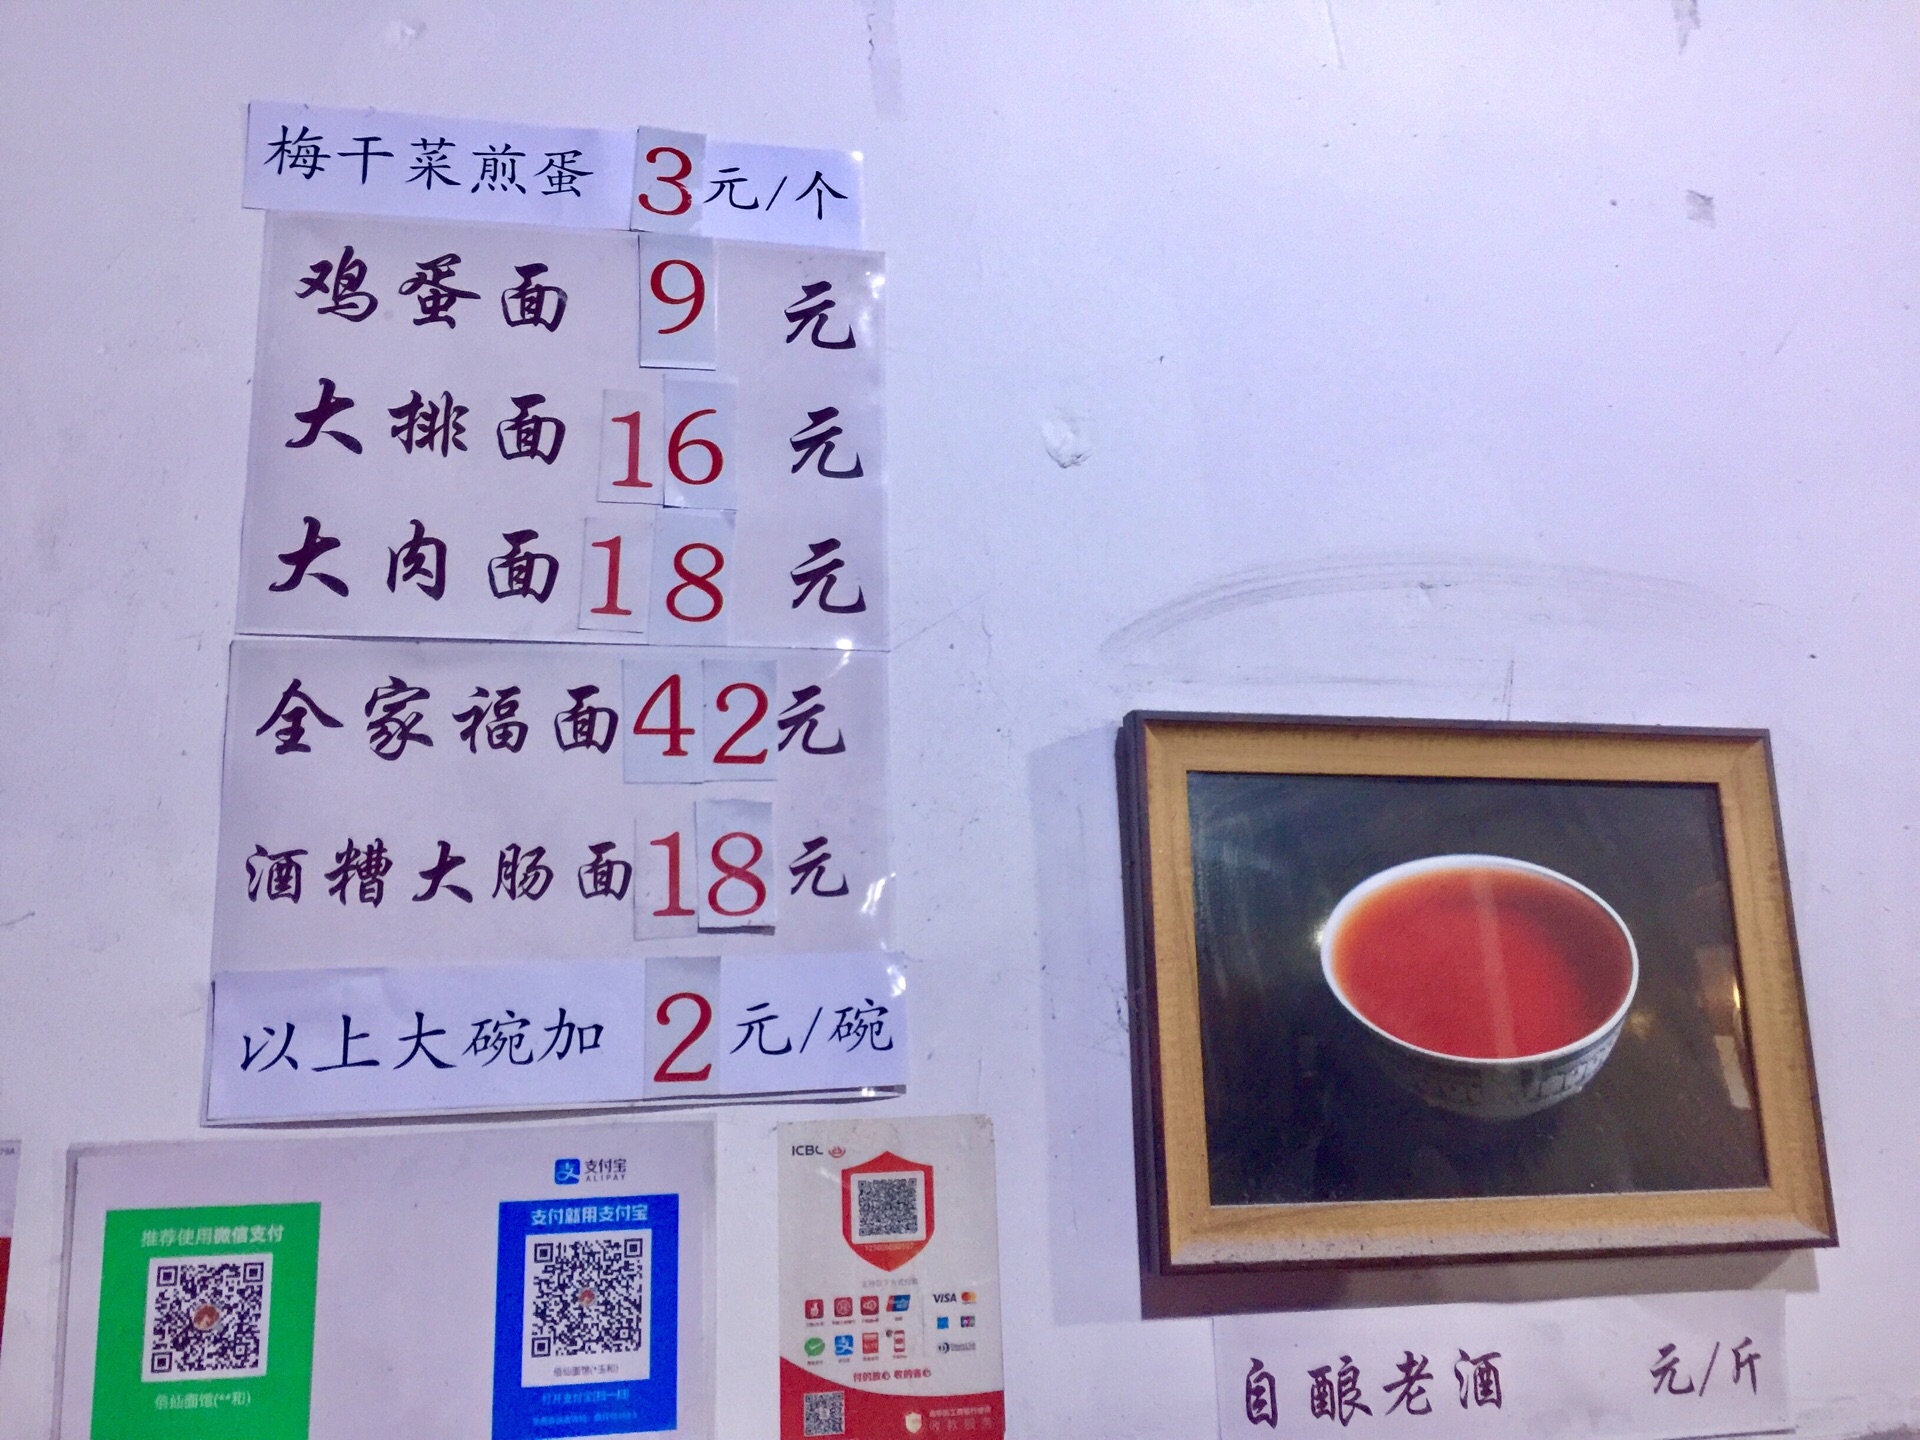 梅干菜煎蛋 3元/个
鸡蛋面 9 元
大排面 16 元
大肉面 18 元
全家福面 42元
酒糟大肠面 18元
以上大碗加 2元/碗
支付宝
ALIPAY
推荐使用微信支付
支付就用支付宝
打开支付宝[扫一扫]
ICBC
VISA
付的放心 收的省心
自酿老酒 元/斤